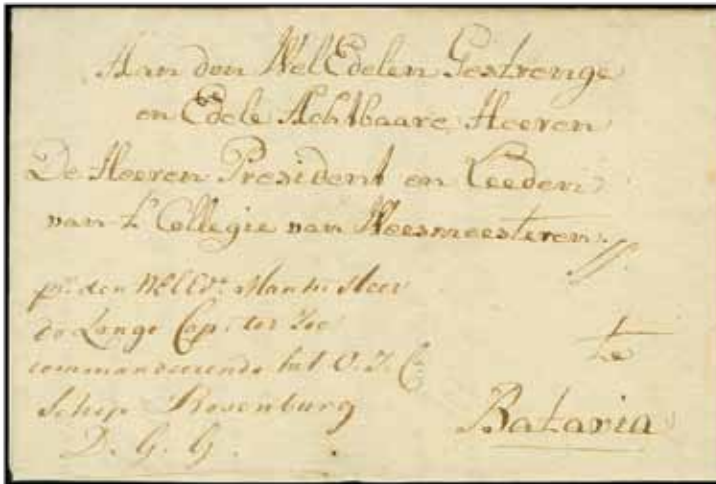 Aan den WelEdelen Gestrenge
en Edele Achtbaare Heeren
De Heeren President en Leeden
van 't Collegie van Weesmeesteren
pr. den WelEd. Manh. Heer
de Lange Cap. ter Zee
commandeerende het O. I. C.
Schip Rosenburg
D. G. G.
te
Batavia